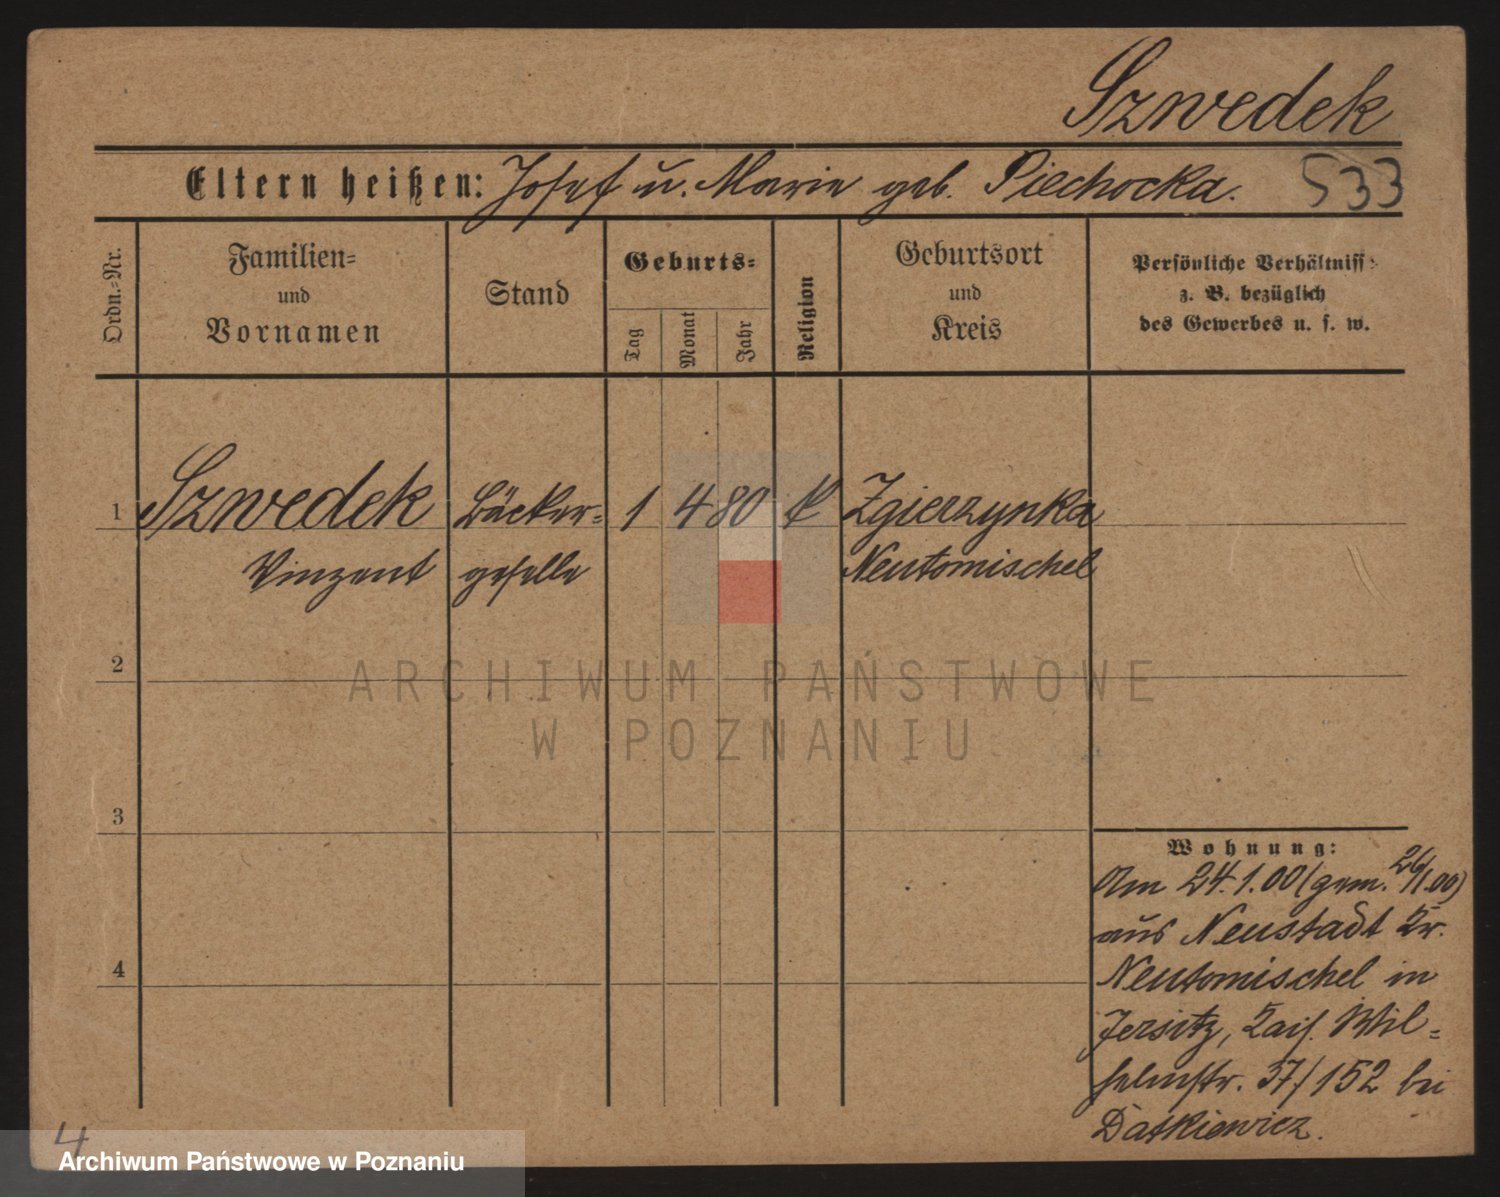 Szwedek
Eltern heißen: Josef u. Marie geb. Piechocka. 533
Ordn.-Nr.
Familien-
und
Vornamen
Stand
Geburts-
Tag
Monat
Jahr
Religion
Geburtsort
und
Kreis
Persönliche Verhältniss
z. B. bezüglich
des Gewerbes u. s. w.
1 Szwedek Bäcker- 1 4 80 k Zgierzynka
Vinzent geselle Neutomischel
2
ARCHIWUM PAŃSTWOWE
W POZNANIU
3
Wohnung:
Am 24.1.00 (gem. 26/1.00)
aus Neustadt Kr.
Neutomischel in
Jersitz, Kais. Wil-
helmstr. 37/152 bei
Datkiewicz.
4
4
Archiwum Państwowe w Poznaniu